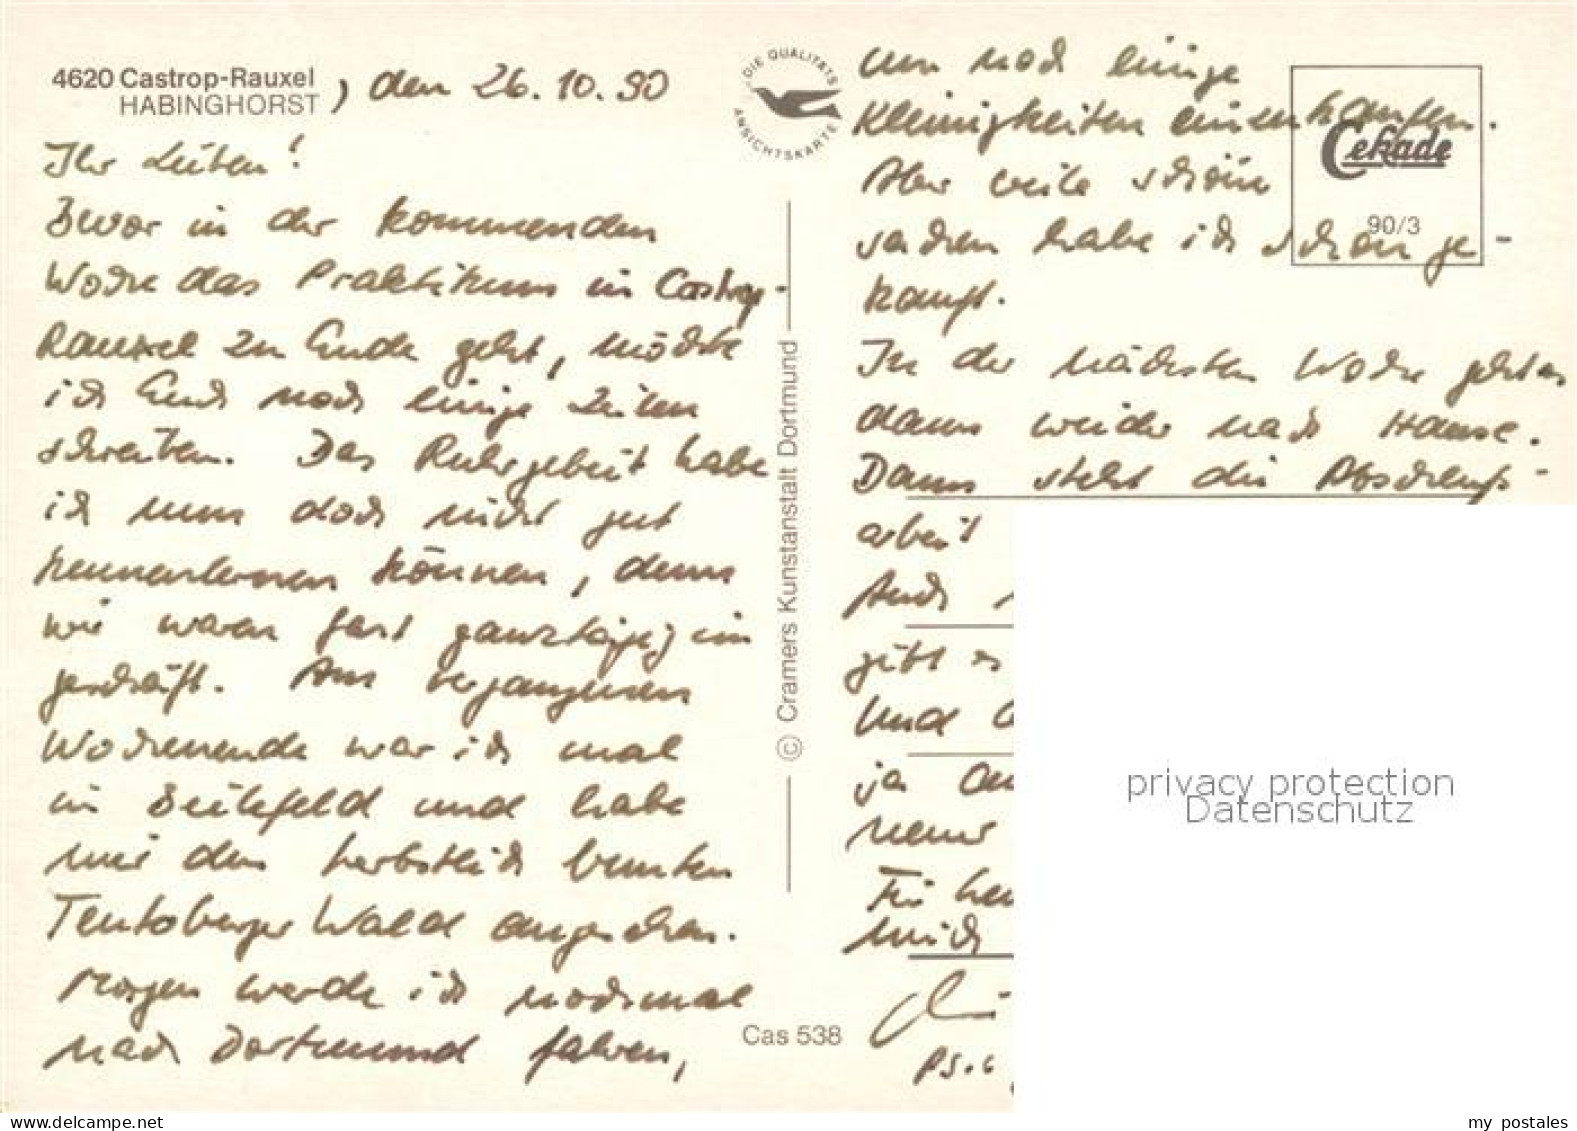 4620 Castrop-Rauxel
HABINGHORST, den 26.10.90
Ihr Lieben!
Zwar in der kommenden
Woche das Praktikum in Castrop-
Rauxel zu Ende geht, möchte
ich Euch noch einige Zeilen
schreiben. Das Ruhrgebiet habe
ich nun doch nicht gut
kennenlernen können, denn
wir waren fast ganztägig im
Geschäft. Am vergangenen
Wochenende war ich mal
in Bielefeld und habe
mir den herbstlich bunten
Teutoburger Wald angesehen.
Morgen werde ich nochmal
nach Dortmund fahren,
um noch einige
Kleinigkeiten einzukaufen.
Aber viele schöne
Sachen habe ich schon ge-
kauft.
In der nächsten Woche geht es
dann wieder nach Hause.
Dann steht die Abschluß-
arbeit
Auch
gibt es
Und
ja
neue
Für heu
mich
PS.:
DIE QUALITÄTS
ANSICHTSKARTE
© Cramers Kunstanstalt Dortmund
Cas 538
Cekade
90/3
privacy protection
Datenschutz
my postales